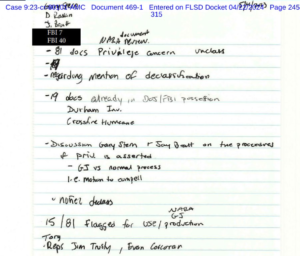 Case 9:23-cr- MC Document 469-1 Entered on FLSD Docket 04/22/2024 Page 245
315
D.
J. Bratt
FBI 7
FBI 40
NARA document Review.
- 81 docs Privilege concern unclass
- regarding mention of declassification
- 19 docs already in DOJ/FBI possession
Durham Inv.
Crossfire Hurricane
- Discussion Gary Stern + Jay Bratt on the procedures
if priv is asserted
- GJ vs normal process
i.e. Motion to compell
NARA
GJ
15/81 flagged for use/production
-Reps Jim Trusty, Evan Corcoran